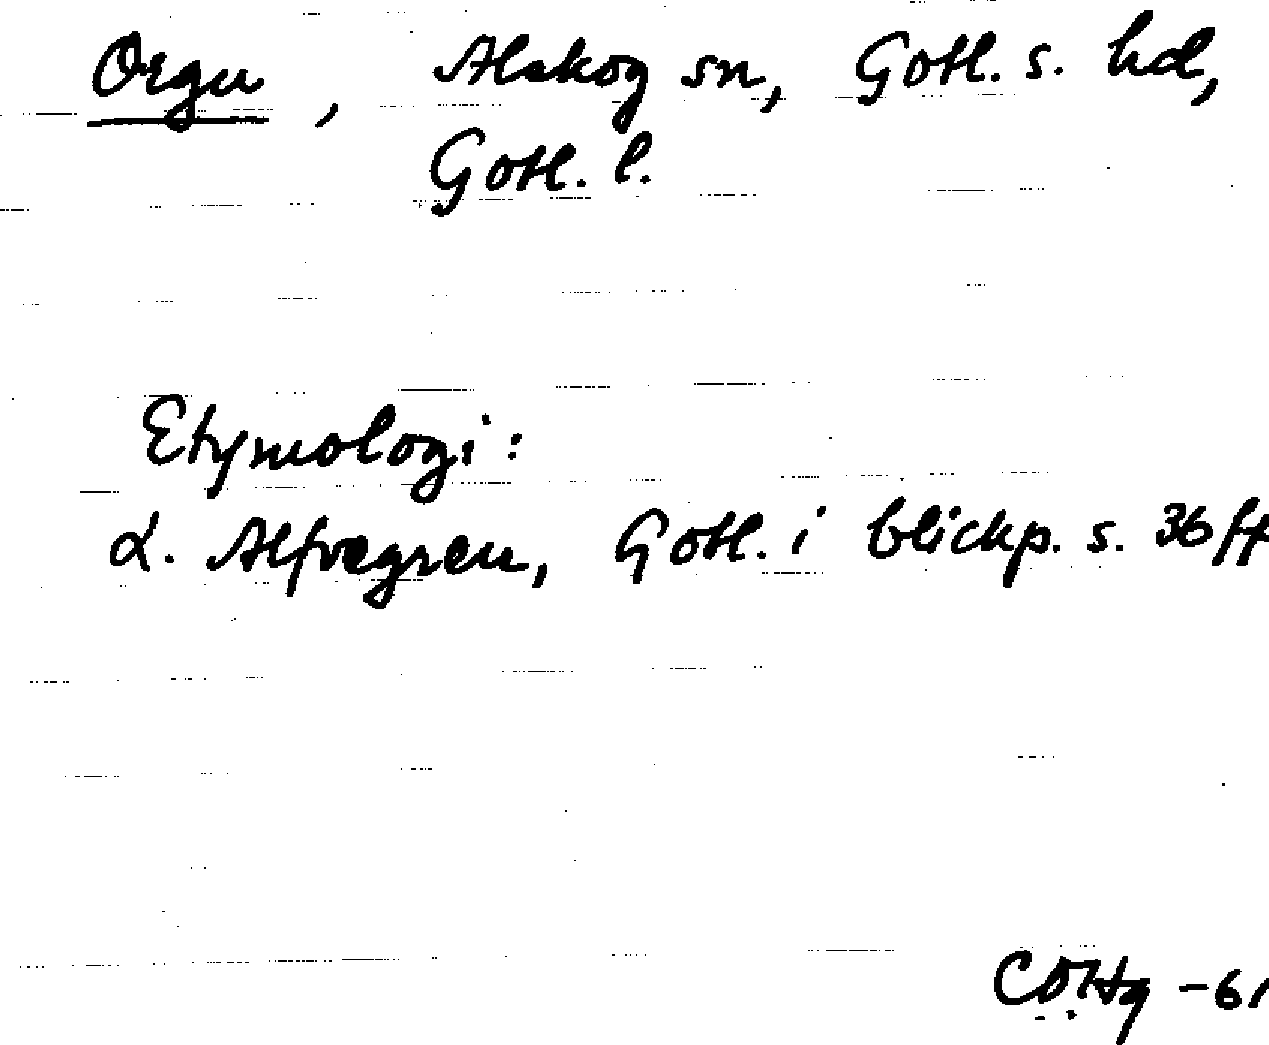 Orgu, Alskog sn, Gotl. s. hd,
Gotl. l.
Etymologi:
L. Alfvegren, Gotl. i blickp. s. 36 ff
-61